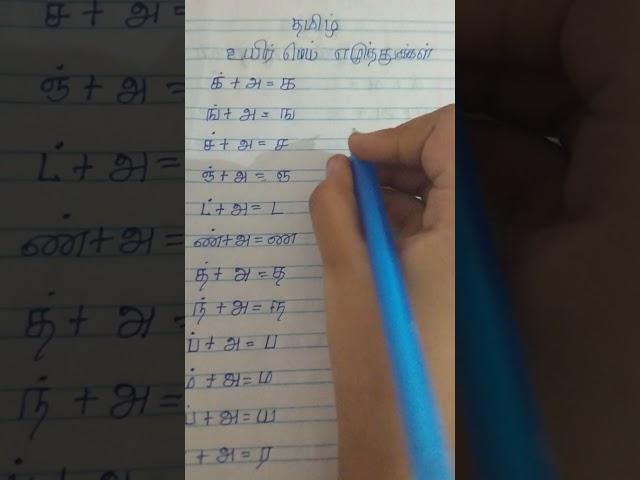 தமிழ்
உயிர் மெய் எழுத்துக்கள்
க் + அ = க
ங் + அ = ங
ச் + அ = ச
ஞ் + அ = ஞ
ட் + அ = ட
ண் + அ = ண
த் + அ = த
ந் + அ = ந
ப் + அ = ப
ம் + அ = ம
ய் + அ = ய
+ அ = ர